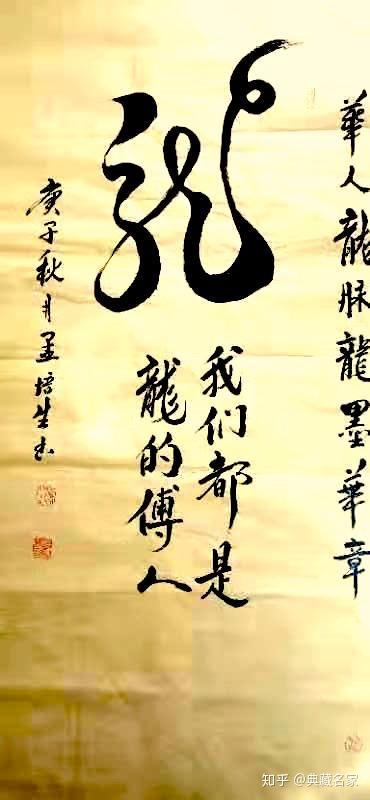 華人龍脉龍墨華章
龍
我们都是
龍的傳人
庚子秋月培生书
知乎 @典藏名家